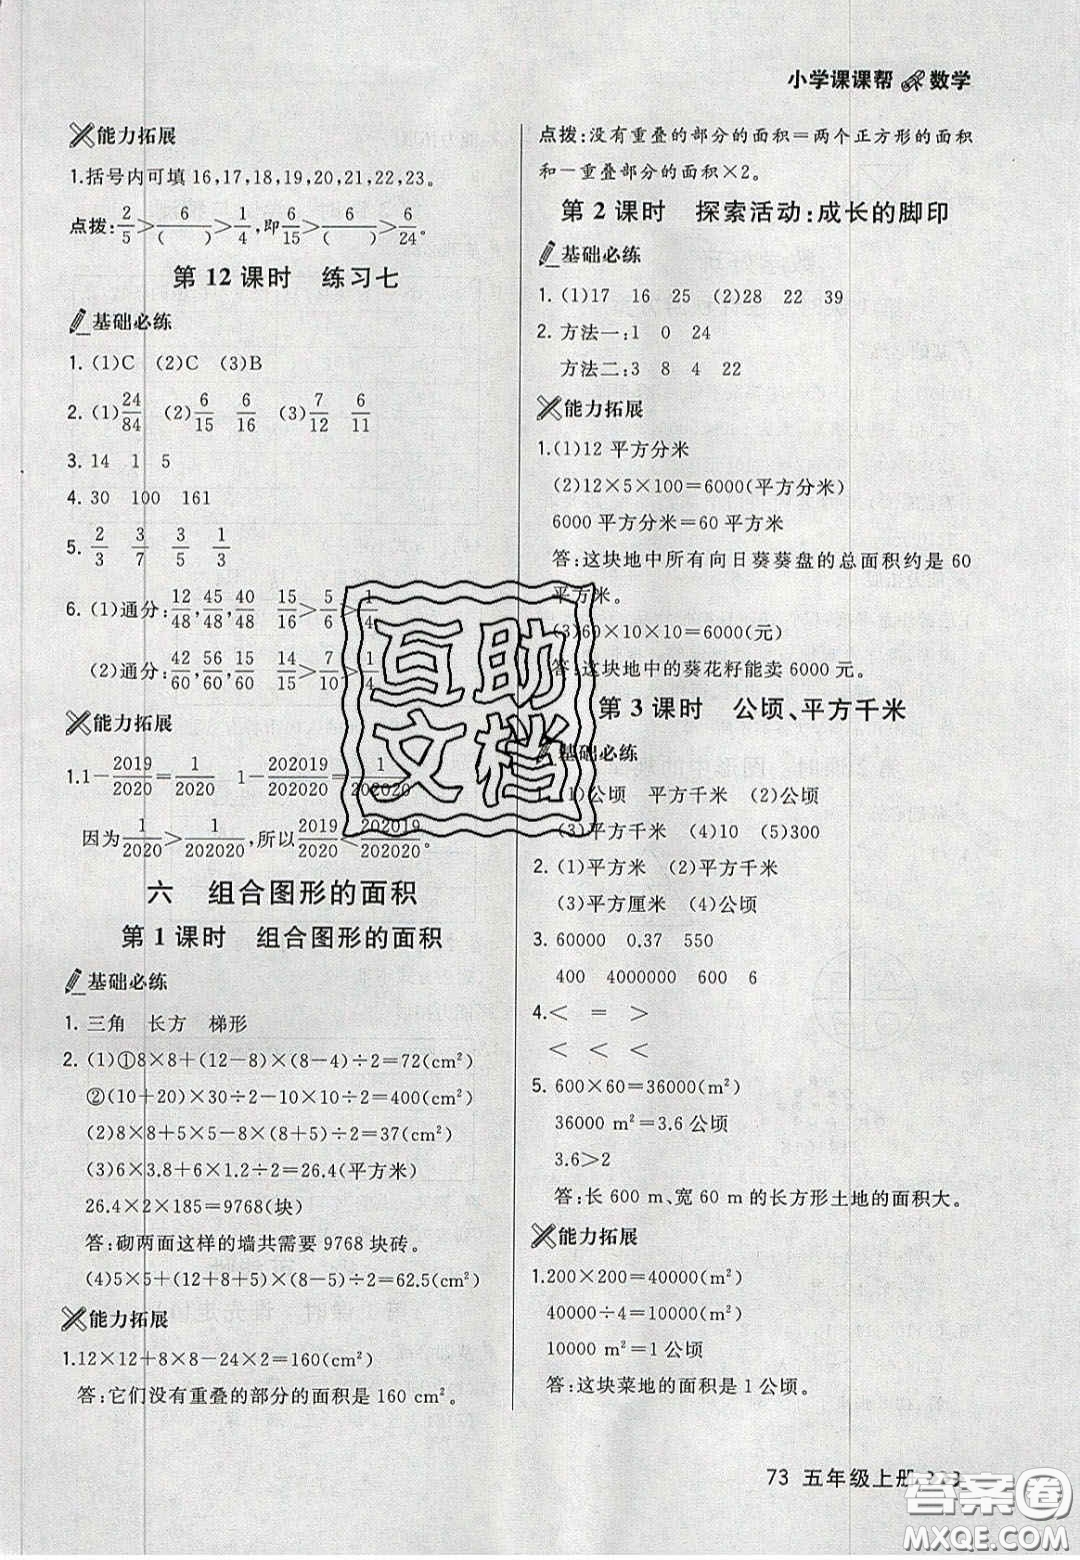 小学课课帮 数学
能力拓展
1.括号内可填 16,17,18,19,20,21,22,23。
点拨:2/5>6/( )>1/4,即6/15>6/( )>6/24。
第 12 课时 练习七
基础必练
1. (1)C (2)C (3)B
2. (1)24/84 (2)6/15 6/16 (3)7/12 6/11
3. 14 1 5
4. 30 100 161
5. 2/3 3/7 3/5 1/3
6. (1)通分:12/48,45/48,40/48 15/16>5/6>1/4
(2)通分:42/60,56/60,15/60 14/15>7/10>1/4
能力拓展
1.1-2019/2020=1/2020 1-202019/202020=1/202020
因为1/2020>1/202020,所以2019/2020<202019/202020。
六 组合图形的面积
第 1 课时 组合图形的面积
基础必练
1. 三角 长方 梯形
2. (1)①8×8+(12-8)×(8-4)÷2=72(cm²)
②(10+20)×30÷2-10×10÷2=400(cm²)
(2)8×8+5×5-8×(8+5)÷2=37(cm²)
(3)6×3.8+6×1.2÷2=26.4(平方米)
26.4×2×185=9768(块)
答:砌两面这样的墙共需要 9768 块砖。
(4)5×5+(12+8+5)×(8-5)÷2=62.5(cm²)
能力拓展
1.12×12+8×8-24×2=160(cm²)
答:它们没有重叠的部分的面积是 160 cm²。
点拨:没有重叠的部分的面积=两个正方形的面积
和-重叠部分的面积×2。
第 2 课时 探索活动:成长的脚印
基础必练
1. (1)17 16 25 (2)28 22 39
2. 方法一:1 0 24
方法二:3 8 4 22
能力拓展
1.(1)12 平方分米
(2)12×5×100=6000(平方分米)
6000 平方分米=60 平方米
答:这块地中所有向日葵葵盘的总面积约是 60
平方米。
(3)60×10×10=6000(元)
答:这块地中的葵花籽能卖 6000 元。
第 3 课时 公顷、平方千米
基础必练
1. (1)公顷 平方千米 (2)公顷
(3)平方千米 (4)10 (5)300
2. (1)平方米 (2)平方千米
(3)平方厘米 (4)公顷
3. 60000 0.37 550
400 4000000 600 6
4.< = >
< < <
5. 600×60=36000(m²)
36000 m²=3.6 公顷
3.6>2
答:长 600 m、宽 60 m 的长方形土地的面积大。
能力拓展
1.200×200=40000(m²)
40000÷4=10000(m²)
10000 m²=1 公顷
答:这块菜地的面积是 1 公顷。
互助
文档
73 五年级上册
答案圈
MXQE.COM